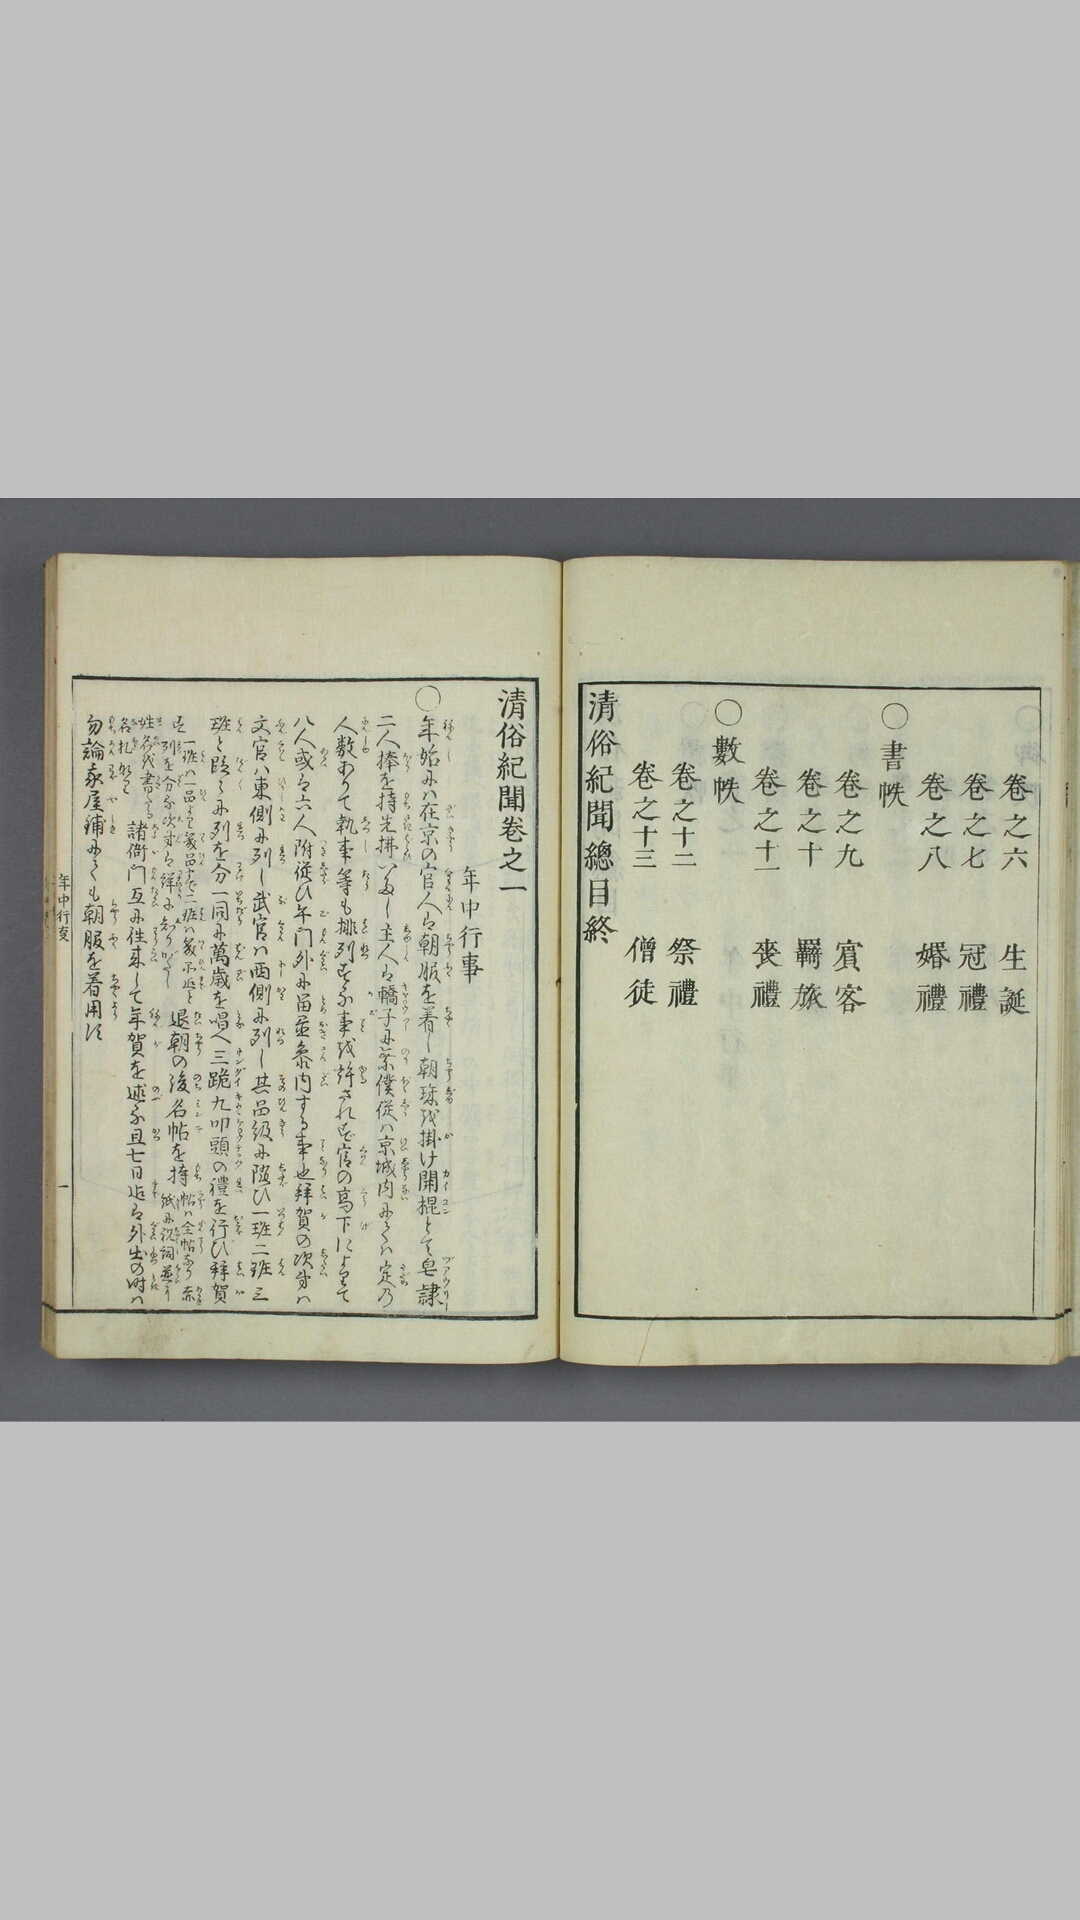 卷之六 生誕
卷之七 冠禮
卷之八 婚禮
○書帙
卷之九 賓客
卷之十 羇旅
卷之十一 喪禮
○數帙
卷之十二 祭禮
卷之十三 僧徒
清俗紀聞總目終
清俗紀聞卷之一
年中行事
○年始にハ在京の官人は朝服を着し朝珠を掛け開棍とて皂隷
二人棒を持先拂いたし主人は轎子に乗僕從ハ京城内にてハ定乃
人數ありて執事等も排列する事を許されず官の高下によりて
八人或は六人附從ひ午門外に留置参内する事也拜賀の次第ハ
文官ハ東側に列し武官ハ西側に列し其品級に随ひ一班二班三
班と段々に列を分一同に萬歳を唱へ三跪九叩頭の禮を行ひ拜賀
す 退朝の後名帖を持
諸衙門互に往来して年賀を述る且七日迄は外出の時ハ
勿論家屋鋪にても朝服を着用す
年中行事 一